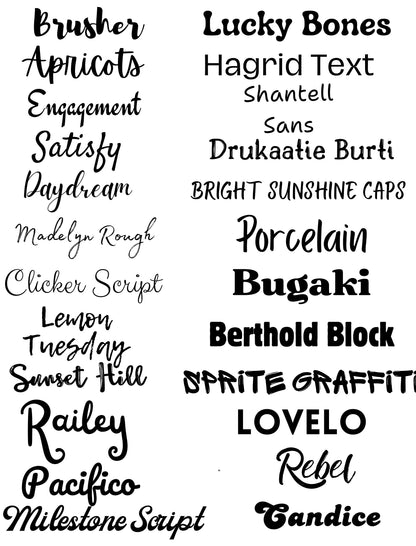 Brusher
Apricots
Engagement
Satisfy
Daydream
Madelyn Rough
Clicker Script
Lemon
Tuesday
Sunset Hill
Railey
Pacifico
Milestone Script
Lucky Bones
Hagrid Text
Shantell
Sans
Drukaatie Burti
BRIGHT SUNSHINE CAPS
Porcelain
Bugaki
Berthold Block
SPRITE GRAFFITI
LOVELO
Rebel
Candice